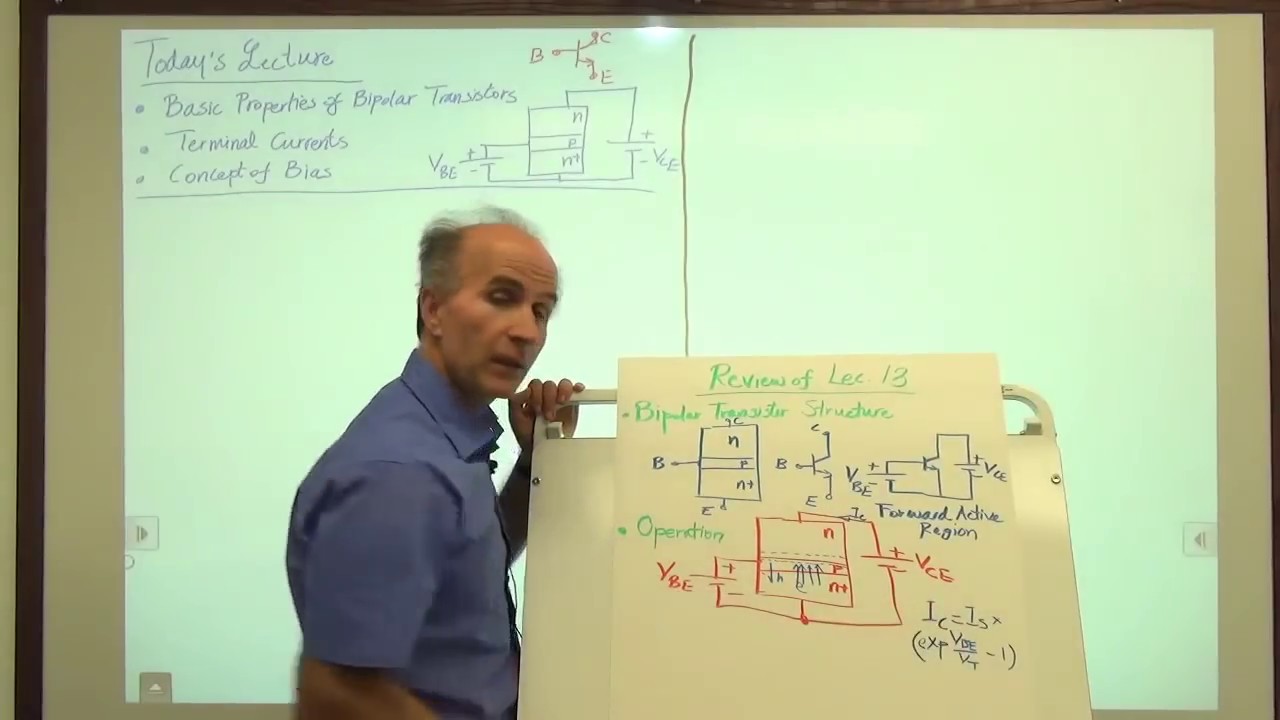 Today's Lecture
• Basic Properties of Bipolar Transistors
• Terminal Currents
• Concept of Bias
B
C
E
n
p
n+
+
-
VBE
+
-
VCE
Review of Lec. 13
• Bipolar Transistor Structure
C
n
B
p
n+
E
C
B
E
VBE
+
-
+
-
VCE
Forward Active
Region
• Operation
Ic
n
h
e
p
n+
VBE
+
-
+
-
VCE
Ic = Is ×
(exp VBE/VT - 1)